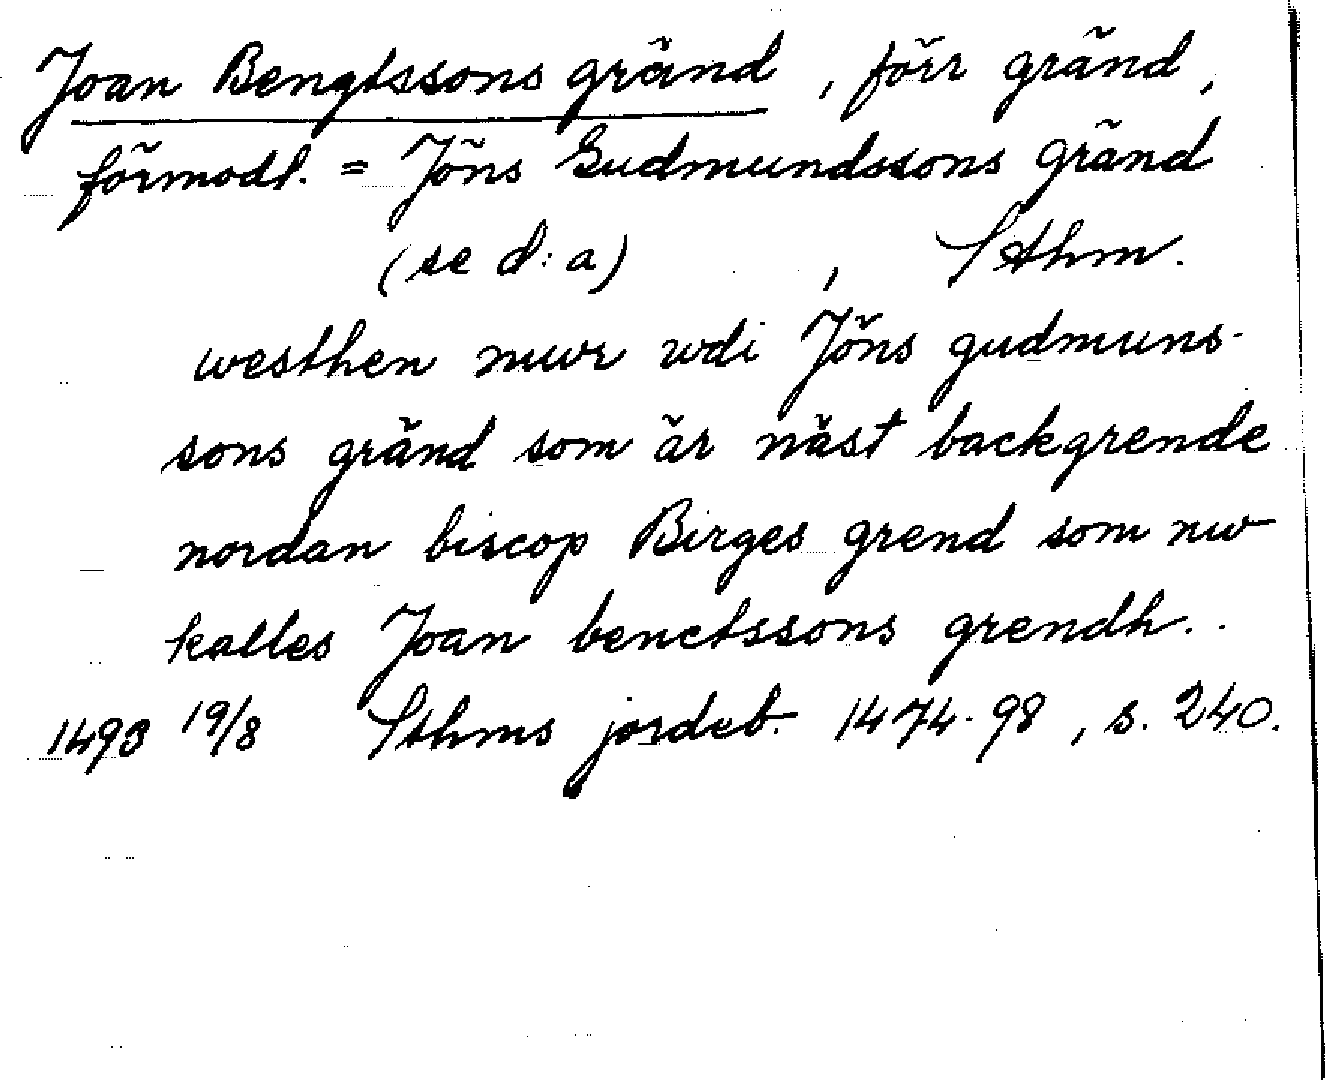 Joan Bengtssons gränd, förr gränd,
förmodl. = Jöns Gudmundssons gränd
(se d:a) , Sthm.
westhen mwr wdi Jöns gudmuns-
sons gränd som är näst backgrende
nordan biscop Birges grend som nw
kalles Joan benctssons grendh..
1493 19/8 Sthms jordeb. 1474-98, s. 240.